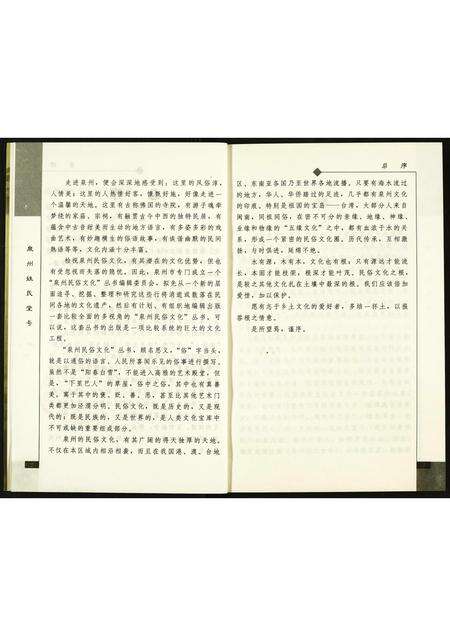 泉州姓氏堂号
走进泉州，便会深深地感受到：这里的风俗淳，
人情美；这里的人热情好客，慷慨好施，好像走进一
个温馨的天地。这里有古称佛国的寺院，有游子魂牵
梦绕的家庙、宗祠，有融贯古今中西的独特民居，有
蕴含中古音甜美而生动的地方语言，有多姿多彩的戏
曲艺术；有妙趣横生的俗语故事，有诙谐幽默的民间
熟语等等，文化内涵十分丰富。
检视泉州民俗文化，有其潜在的文化优势，但也
有受忽视而失落的隐忧。因此，泉州市专门成立一个
“泉州民俗文化”丛书编辑委员会，拟先从一个新的层
面追寻、挖掘、整理和研究这些行将消逝或散落在民
间各地的文化遗产。然后有计划、有组织地编辑出版
一套比较全面的多视角的“泉州民俗文化”丛书。可
以说，这套丛书的出版是一项比较系统的巨大的文化
工程。
“泉州民俗文化”丛书，顾名思义，“俗”字当头，
就是以通俗的语言、人民所喜闻乐见的俗事进行撰写。
虽然不是“阳春白雪”，不能进入高雅的艺术殿堂，但
是，“下里巴人”的草屋，俗中之俗，其中也有真善
美。寓于其中的褒、贬、善、恶，甚至比其他艺术门
类都更加泾渭分明。民俗文化，既是历史的，又是现
代的；既是民族的，又是世界的，是人类文化宝库中
不可或缺的重要组成部分。
泉州的民俗文化，有其广阔的得天独厚的天地。
不仅在本区域内相沿相袭，而且在我国港、澳、台地
总序
区、东南亚各国乃至世界各地流播。只要有海水流过
的地方，华人、华侨踏过的足迹，几乎都有泉州文化
的印痕。特别是祖国的宝岛——台湾，大部分人来自
闽南，同根同俗，在密不可分的亲缘、地缘、神缘、
业缘和物缘的“五缘文化”之中，都有血浓于水的关
系，形成一个紧密的民俗文化圈。历代传承，互相激
扬，与时俱进，延绵不绝。
水有源，木有本，文化也有根；只有源远才能流
长，本固才能枝荣，根深才能叶茂。民俗文化之根，
是较之其他文化扎在土壤中最深的根。我们应该倍加
爱惜，加以保护。
愿有志于乡土文化的爱好者，多培一抔土，以报
答根之情意。
是所望焉，谨序。